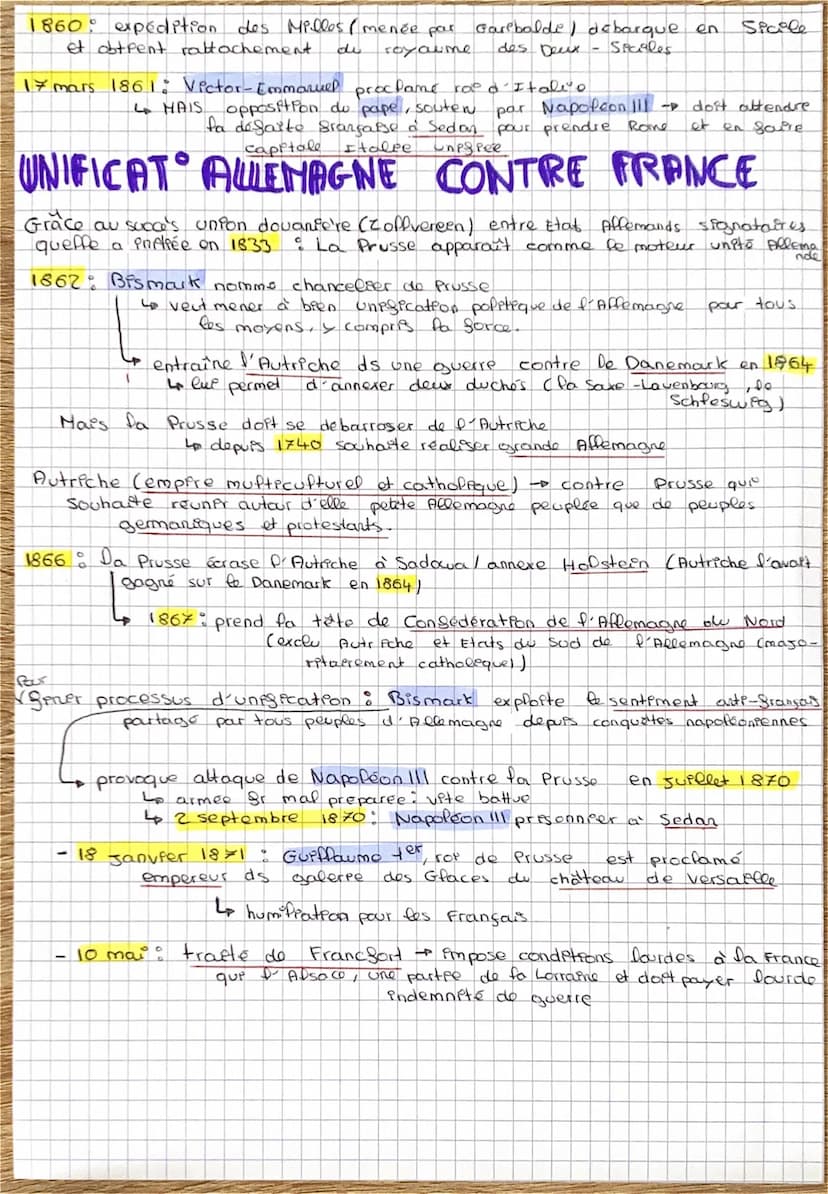 1860 : expédition des Milles (menée par Garibalde) débarque en Sicile
et obtient rattachement du royaume des Deux - Siciles
17 mars 1861 : Victor-Emmanuel proclamé roi d'Italie
↳ MAIS opposition du pape, souten par Napoléon III → doit attendre
la défaite française à Sedan pour prendre Rome et en faire
capitale Italie unifiée
UNIFICAT° ALLEMAGNE CONTRE FRANCE
Grâce au succès union douanière (Zollvereen) entre Etat Allemands signataires
quelle a initiée en 1833 : La Prusse apparaît comme le moteur unité Allema
nde
1862 : Bismark nommé chancelier de Prusse
↳ veut mener à bien unification politique de l'Allemagne par tous
les moyens, y compris la force.
↳ entraîne l'Autriche ds une guerre contre le Danemark en 1864
↳ lui permet d'annexer deux duchés (la Saxe-Lauenbourg, le
Schleswig)
Mais la Prusse doit se débarrasser de l'Autriche
↳ depuis 1740 souhaite réaliser grande Allemagne
Autriche (empire multiculturel et catholique) → contre Prusse qui
souhaite réunir autour d'elle petite Allemagne peuplée que de peuples
germaniques et protestants.
1866 : la Prusse écrase l'Autriche à Sadowa / annexe Holstein (Autriche l'avait
gagné sur le Danemark en 1864)
↳ 1867 : prend la tête de Confédération de l'Allemagne du Nord
(exclu Autriche et Etats du Sud de l'Allemagne (majo-
ritairement catholique))
Pour
√ gérer processus d'unification : Bismark exploite le sentiment anti-français
partagé par tous peuples d'Allemagne depuis conquêtes napoléoniennes
↳ provoque attaque de Napoléon III contre la Prusse en juillet 1870
↳ armée fr mal préparée : vite battue
↳ 2 septembre 1870 : Napoléon III prisonnier à Sedan
- 18 janvier 1871 : Guillaume 1er, roi de Prusse est proclamé
empereur ds galerie des Glaces du château de Versaille
↳ humiliation pour les Français
- 10 mai : traité de Francfort → impose conditions lourdes à la France
qui l'Alsace, une partie de la Lorraine et doit payer lourde
indemnité de guerre